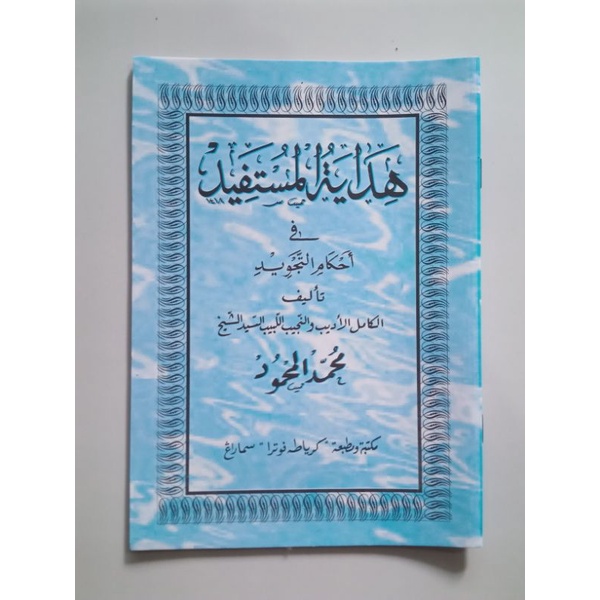 هَدَايَةُ الْمُسْتَفِيْدِ
فى
أَحْكَامِ التَّجْوِيْدِ
تأليف
الكامل الأديب والنجيب اللبيب السيد الشيخ
مُحَمَّد الْمَحْمُوْد
مكتبة ومطبعة "كرياطه فوترا" سماراڠ